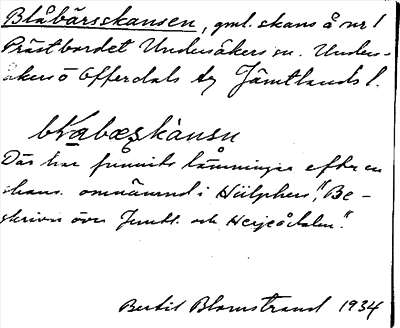 Blåbärsskansen, gml. skans å nr 1
Prästbordet Undersåkers sn. Under-
såkers o Offerdals tg Jämtlands l.
blåbæṣkànsn
Där har funnits lämningar efter en
skans. omnämnd i Hülphers, "Be-
skrivn över Jemtl. och Herjeådalen".
Bertil Blomstrand 1934